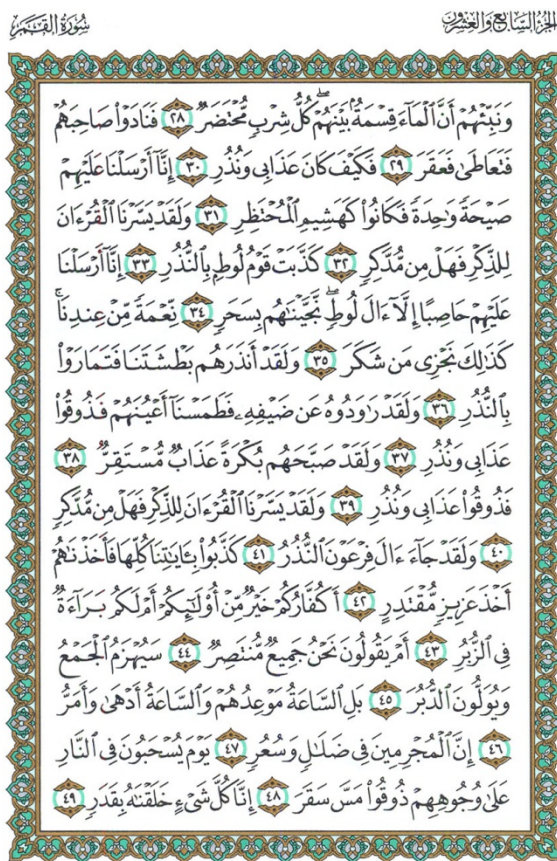 سُورَةُ القَمَرِ
الجُزْءُ السَّابِعُ وَالعِشْرُونَ
وَنَبِّئْهُمْ أَنَّ ٱلْمَآءَ قِسْمَةٌۢ بَيْنَهُمْۖ كُلُّ شِرْبٍ مُّحْتَضَرٌ ٢٨ فَنَادَوْا۟ صَاحِبَهُمْ
فَتَعَاطَىٰ فَعَقَرَ ٢٩ فَكَيْفَ كَانَ عَذَابِى وَنُذُرِ ٣٠ إِنَّآ أَرْسَلْنَا عَلَيْهِمْ
صَيْحَةً وَٰحِدَةً فَكَانُوا۟ كَهَشِيمِ ٱلْمُحْتَظِرِ ٣١ وَلَقَدْ يَسَّرْنَا ٱلْقُرْءَانَ
لِلذِّكْرِ فَهَلْ مِن مُّدَّكِرٍ ٣٢ كَذَّبَتْ قَوْمُ لُوطٍۭ بِٱلنُّذُرِ ٣٣ إِنَّآ أَرْسَلْنَا
عَلَيْهِمْ حَاصِبًا إِلَّآ ءَالَ لُوطٍۖ نَّجَّيْنَٰهُم بِسَحَرٍ ٣٤ نِّعْمَةً مِّنْ عِندِنَاۚ
كَذَٰلِكَ نَجْزِى مَن شَكَرَ ٣٥ وَلَقَدْ أَنذَرَهُم بَطْشَتَنَا فَتَمَارَوْا۟
بِٱلنُّذُرِ ٣٦ وَلَقَدْ رَٰوَدُوهُ عَن ضَيْفِهِۦ فَطَمَسْنَآ أَعْيُنَهُمْ فَذُوقُوا۟
عَذَابِى وَنُذُرِ ٣٧ وَلَقَدْ صَبَّحَهُم بُكْرَةً عَذَابٌ مُّسْتَقِرٌّ ٣٨
فَذُوقُوا۟ عَذَابِى وَنُذُرِ ٣٩ وَلَقَدْ يَسَّرْنَا ٱلْقُرْءَانَ لِلذِّكْرِ فَهَلْ مِن مُّدَّكِرٍ
٤٠ وَلَقَدْ جَآءَ ءَالَ فِرْعَوْنَ ٱلنُّذُرُ ٤١ كَذَّبُوا۟ بِـَٔايَٰتِنَا كُلِّهَا فَأَخَذْنَٰهُمْ
أَخْذَ عَزِيزٍ مُّقْتَدِرٍ ٤٢ أَكُفَّارُكُمْ خَيْرٌ مِّنْ أُو۟لَٰٓئِكُمْ أَمْ لَكُم بَرَآءَةٌ
فِى ٱلزُّبُرِ ٤٣ أَمْ يَقُولُونَ نَحْنُ جَمِيعٌ مُّنتَصِرٌ ٤٤ سَيُهْزَمُ ٱلْجَمْعُ
وَيُوَلُّونَ ٱلدُّبُرَ ٤٥ بَلِ ٱلسَّاعَةُ مَوْعِدُهُمْ وَٱلسَّاعَةُ أَدْهَىٰ وَأَمَرُّ
٤٦ إِنَّ ٱلْمُجْرِمِينَ فِى ضَلَٰلٍ وَسُعُرٍ ٤٧ يَوْمَ يُسْحَبُونَ فِى ٱلنَّارِ
عَلَىٰ وُجُوهِهِمْ ذُوقُوا۟ مَسَّ سَقَرَ ٤٨ إِنَّا كُلَّ شَىْءٍ خَلَقْنَٰهُ بِقَدَرٍ ٤٩